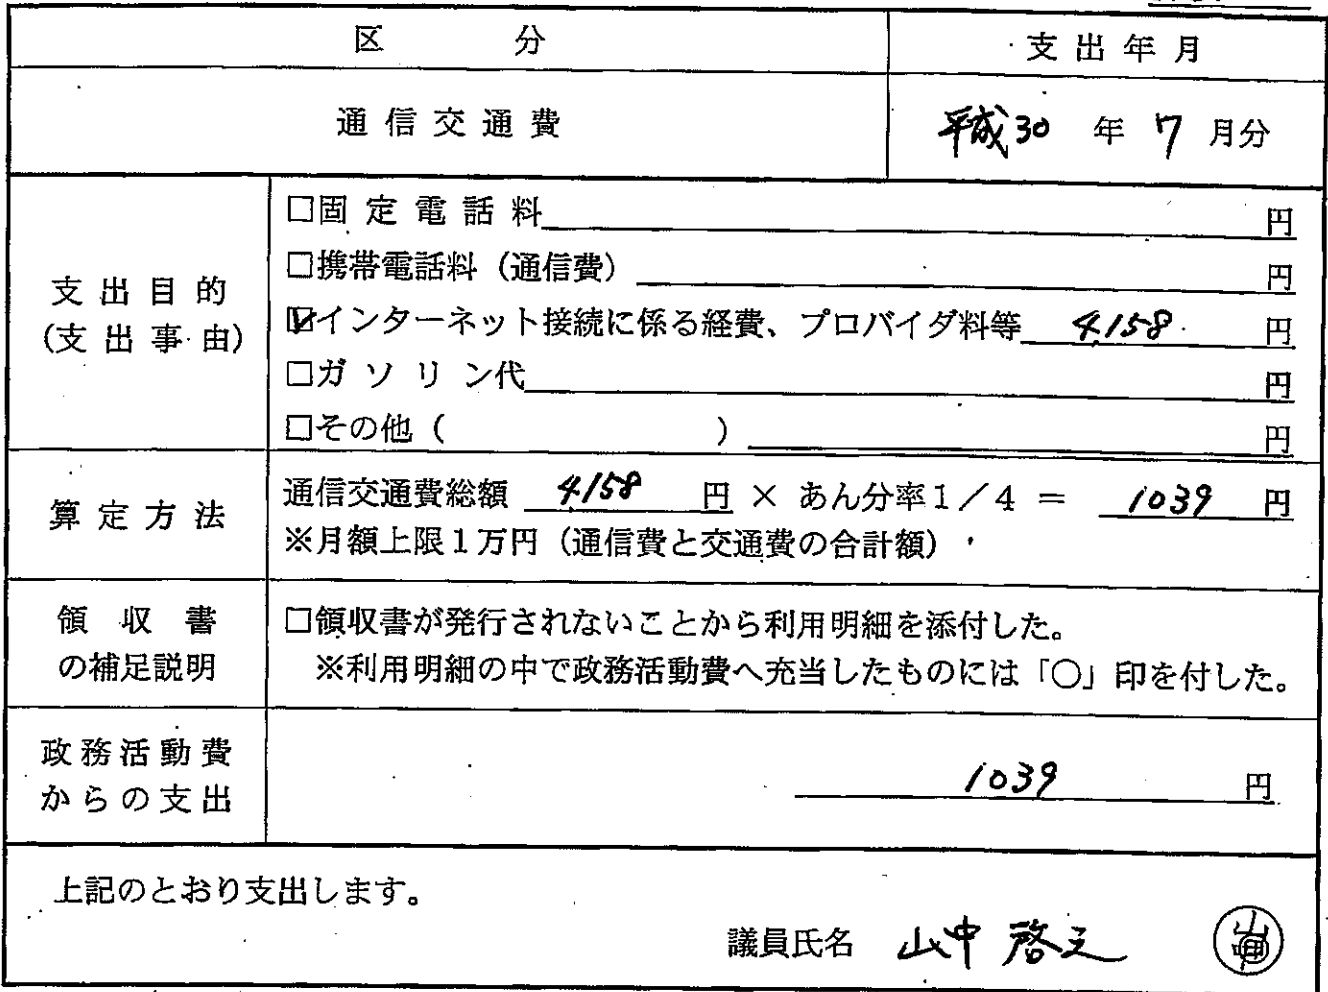 区分 支出年月
通信交通費 平成30年7月分
支出目的
(支出事由)
□固定電話料 円
□携帯電話料（通信費） 円
☑インターネット接続に係る経費、プロバイダ料等 4,158 円
□ガソリン代 円
□その他（ ） 円
算定方法
通信交通費総額 4,158 円 × あん分率1／4 ＝ 1039 円
※月額上限1万円（通信費と交通費の合計額）
領収書
の補足説明
□領収書が発行されないことから利用明細を添付した。
※利用明細の中で政務活動費へ充当したものには「○」印を付した。
政務活動費
からの支出
1039 円
上記のとおり支出します。
議員氏名 山中啓之